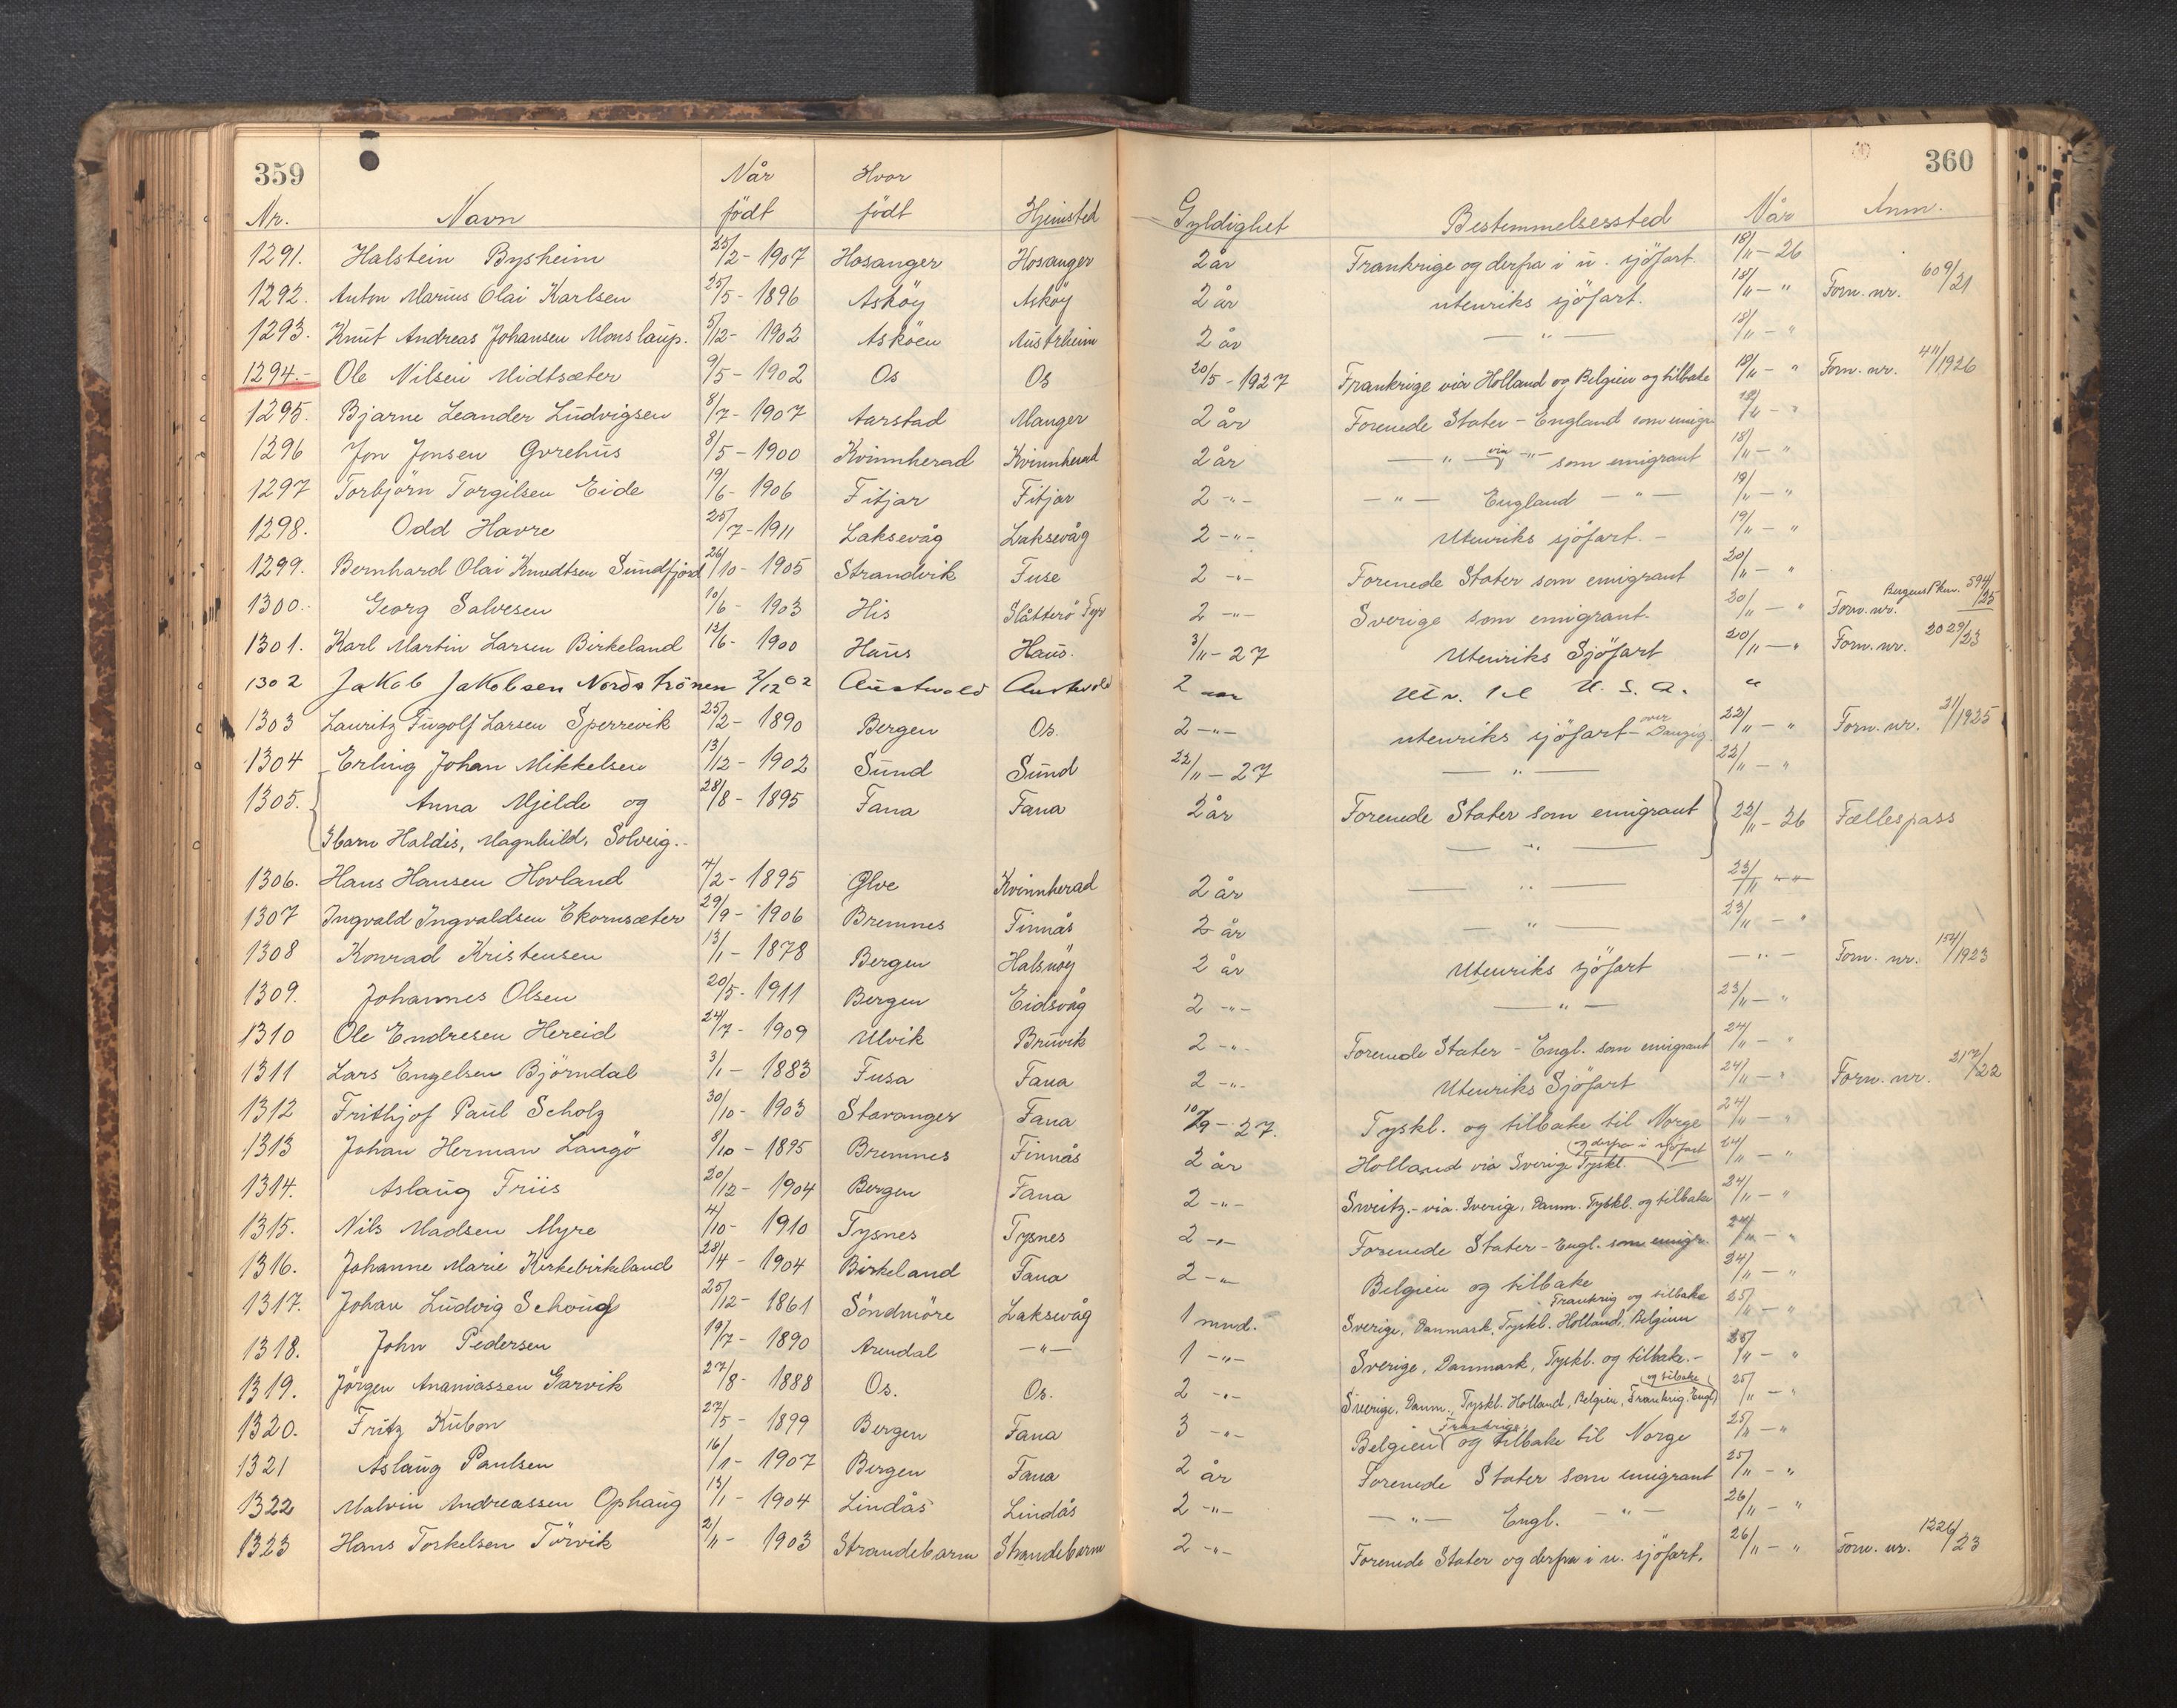 359 360
Når Hvor
Nr. Navn født født Hjemsted Gyldighet Bestemmelsessted Når Anm.
1291. Halstein Bysheim 25/2 - 1907 Hosanger Hosanger 2 år Frankrige og derfra i u. sjöfart. 18/11 - 26
1292. Anton Marius Olai Karlsen 25/5 - 1896 Asköy Asköy 2 år utenriks sjöfart. 18/11 - " Forn. nr. 609/21
1293. Knut Andreas Johansen Monslaup. 5/12 - 1902 Asköen Austrheim 2 år — " — 18/11 - "
1294. - Ole Nilsen Midtsæter 9/5 - 1902 Os Os 20/5 - 1927 Frankrige via Holland og Belgien og tilbake 19/11 - " Forn. nr. 411/1926
1295. Bjarne Leander Ludvigsen 8/7 - 1907 Aarstad Manger 2 år Forenede Stater - England som emigr. 18/11 - "
1296 Jon Jonsen Gvrehus 8/5 - 1900 Kvinnherad Kvinnherad 2 år — " — via -"- som emigrant 18/11 - "
1297 Torbjörn Torgilsen Eide 19/6 - 1906 Fitjar Fitjar 2 -"- — " — England — " — 19/11 - "
1298. Odd Havre 25/7 - 1911 Laksevåg Laksevåg 2 -"- Utenriks sjöfart. - 19/11 - "
1299. Bernhard Olai Knudtsen Sundfjord 26/10 - 1905 Strandvik Fuse 2 -"- Forenede Stater som emigrant 20/11 - "
1300. Georg Salvesen 10/6 - 1903 His Slåtterö Fyr 2 -"- Sverige som emigrant. 20/11 - " Forn. nr. Bergens Pkm. 594/25
1301. Karl Martin Larsen Birkeland 12/6 - 1900 Haus Haus. 3/11 - 27 Utenriks Sjöfart 20/11 - " Forn. nr. 2029/23
1302 Jakob Jakobsen Nordströnen 2/12 02 Austevold Austevold 2 U. S. A. "
1303 Lauritz Fugolf Larsen Sperrevik 25/2 - 1890 Bergen Os. 2 -"- utenriks sjöfart - over Danzig 22/11 - " Forn. nr. 31/1925
1304 Erling Johan Mikkelsen 13/12 - 1902 Sund Sund 22/11 - 27 — " — 22/11 - "
1305. Anna Mjelde og 28/8 - 1895 Fana Fana 2 år Forenede Stater som emigrant 22/11 - 26 Fællespass
3 barn Haldis, Magnhild, Solveig. - — " —
1306. Hans Hansen Hovland 4/2 - 1895 Ølve Kvinnherad 2 år — " — 23/11 - "
1307 Ingvald Ingvaldsen Ekornsæter 29/9 - 1906 Bremnes Finnås 2 år — " — 23/11 - "
1308 Konrad Kristensen 13/1 - 1878 Bergen Halsnöy 2 år Utenriks sjöfart — " — Forn. nr. 154/1923
1309. Johannes Olsen 20/5 - 1911 Bergen Eidsvåg 2 -"- — " — 23/11 - "
1310 Ole Endresen Hereid 24/7 - 1909 Ulvik Bruvik 2 -"- Forenede Stater - Engl. som emigrant 24/11 - "
1311 Lars Engelsen Björndal 3/1 - 1883 Fusa Fana 2 -"- Utenriks Sjöfart 24/11 - " Forn. nr. 217/22
1312 Frithjof Paul Scholz 30/10 - 1903 Stavanger Fana 10/9 - 27. Tyskl. og tilbake til Norge 24/11 - "
1313 Johan Herman Langö 8/10 - 1895 Bremnes Finnås 2 år Holland via Sverige Tyskl. og derfra i sjöfart 24/11 - "
1314. Aslaug Friis 20/12 - 1904 Bergen Fana 2 -"- Sweitz. - via. Sverige, Danm. Tyskl. og tilbake 24/11 - "
1315. Nils Madsen Myre 4/10 - 1910 Tysnes Tysnes 2 -"- Forenede Stater - Engl. som emigr. 24/11 - "
1316. Johanne Marie Kirkebirkeland 28/4 - 1904 Birkeland Fana 2 -"- Belgien og tilbake 24/11 - "
1317. Johan Ludvig Schoug 25/12 - 1861 Söndmöre Laksevåg 1 mnd. Sverige, Danmark, Tyskl. Holland. Belgien Frankrig og tilbake 25/11 - "
1318. John Pedersen 19/7 - 1890 Arendal -"- 1 -"- Sverige, Danmark, Tyskl. og tilbake. - 25/11 - "
1319. Jörgen Ananiassen Garvik 27/8 - 1888 Os. Os. 2 -"- Sverige, Danm., Tyskl. Holland, Belgien, Frankrig. Engl. og tilbake 25/11 - "
1320. Fritz Kubon 27/5 - 1899 Bergen Fana 3 -"- Belgien Frankrige og tilbake til Norge 25/11 - "
1321 Aslaug Paulsen 16/1 - 1907 Bergen Fana 2 år Forenede Stater som emigrant 25/11 - "
1322 Malvin Andreassen Ophaug 13/1 - 1904 Lindås Lindås 2 -"- — " — Engl. — " — 26/11 - "
1323 Hans Torkelsen Törvik 2/11 - 1903 Strandebarm Strandebarm 2 -"- Forenede Stater og derfra i u. sjöfart. 26/11 - " Forn. nr. 1226/23